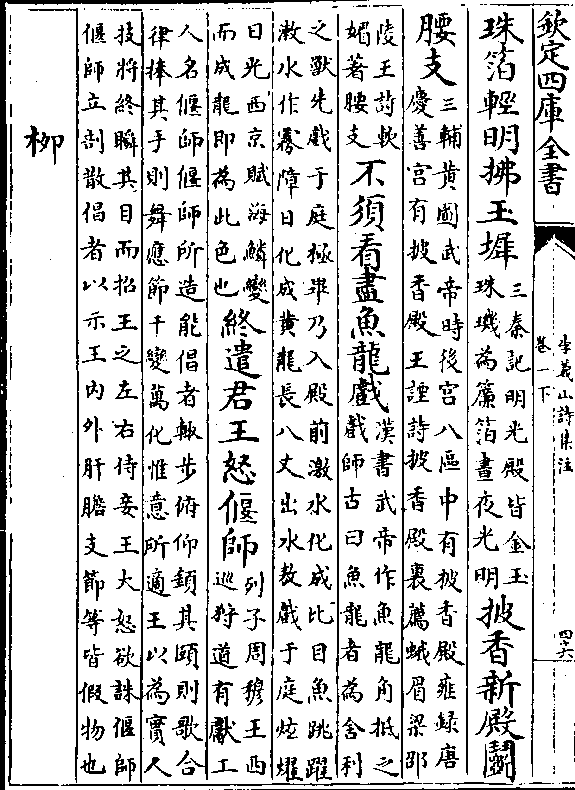 欽定四庫全書
李義山詩集注
卷一下
四六
珠箔輕明拂玉墀三秦記明光殿皆金玉珠璣為簾箔晝夜光明披香新殿鬭
腰支三輔黄圖武帝時後宫八區中有披香殿雍録唐慶善宫有披香殿王諲詩披香殿裏薦蛾眉梁邵
陵王詩軟媚著腰支不須看盡魚龍戲漢書武帝作魚龍角抵之戲師古曰魚龍者為舍利
之獸先戲于庭極畢乃入殿前激水化成比目魚跳躍漱水作霧障日化成黄龍長八丈出水敖戲于庭炫燿
日光西京賦海鱗變而成龍即為此色也終遣君王怒偃師列子周穆王西巡狩道有獻工
人名偃師偃師所造能倡者輙步俯仰鎮其頤則歌合律捧其手則舞應節千變萬化惟意所適王以為實人
技將終瞬其目而招王之左右侍妾王大怒欲誅偃師偃師立剖散倡者以示王内外肝膽支節等皆假物也
柳